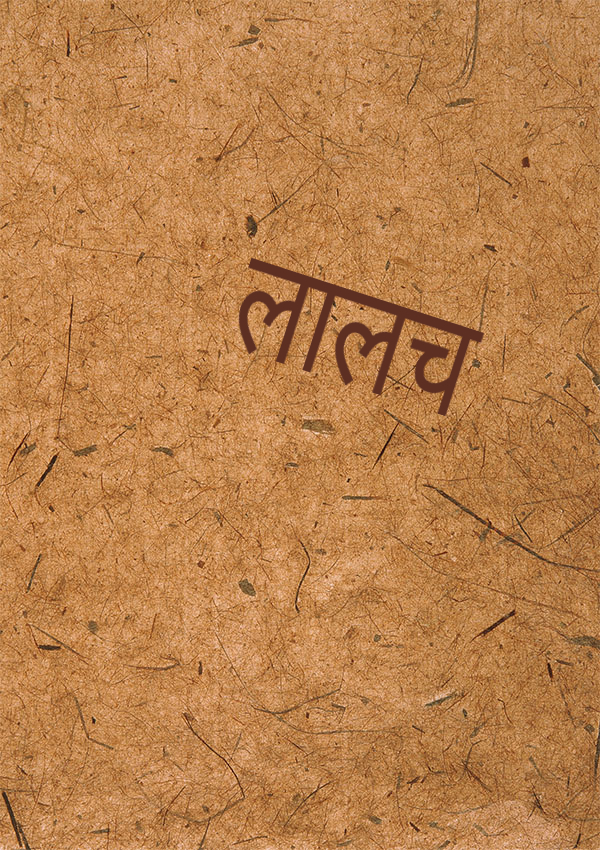 लालच